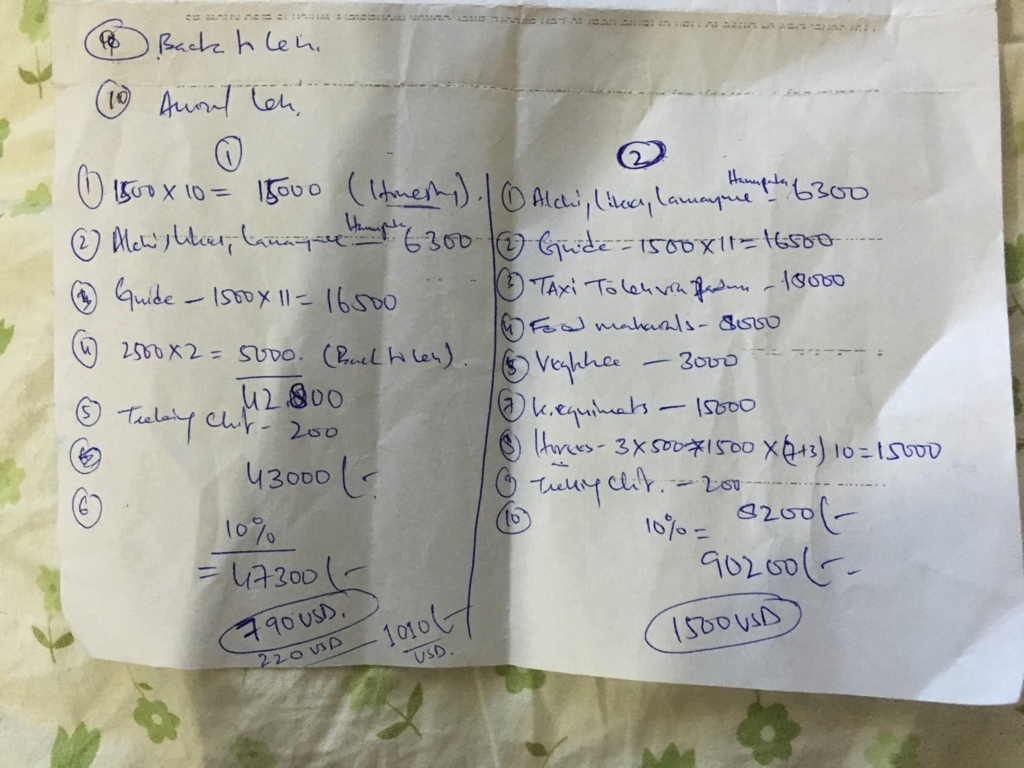 Back to Leh.
10 Leh.
1
1 1500 X 10 = 15000 (Homestay).
2 Alchi, Likir, Lamayure Hanupata - 6300
Guide - 1500 X 11 = 16500
4 2500 X 2 = 5000. (Back to Leh).
42800
5 Trekking Chit. - 200
43000/-
6
10%
= 47300/-
790 USD.
220 USD - 1010/-
USD.
2
1 Alchi, Likir, Lamayure Hanupata - 6300
2 Guide - 1500 X 11 = 16500
3 TAXi To Leh via - 18000
4 Food - 8000
Vegtblee - 3000
7 K. equimets - 15000
8 Horses - 3 X 500 = 1500 X (7+3) 10 = 15000
9 Trekking Chit. - 200
10 8200/-
10% =
90200/-
1500 USD